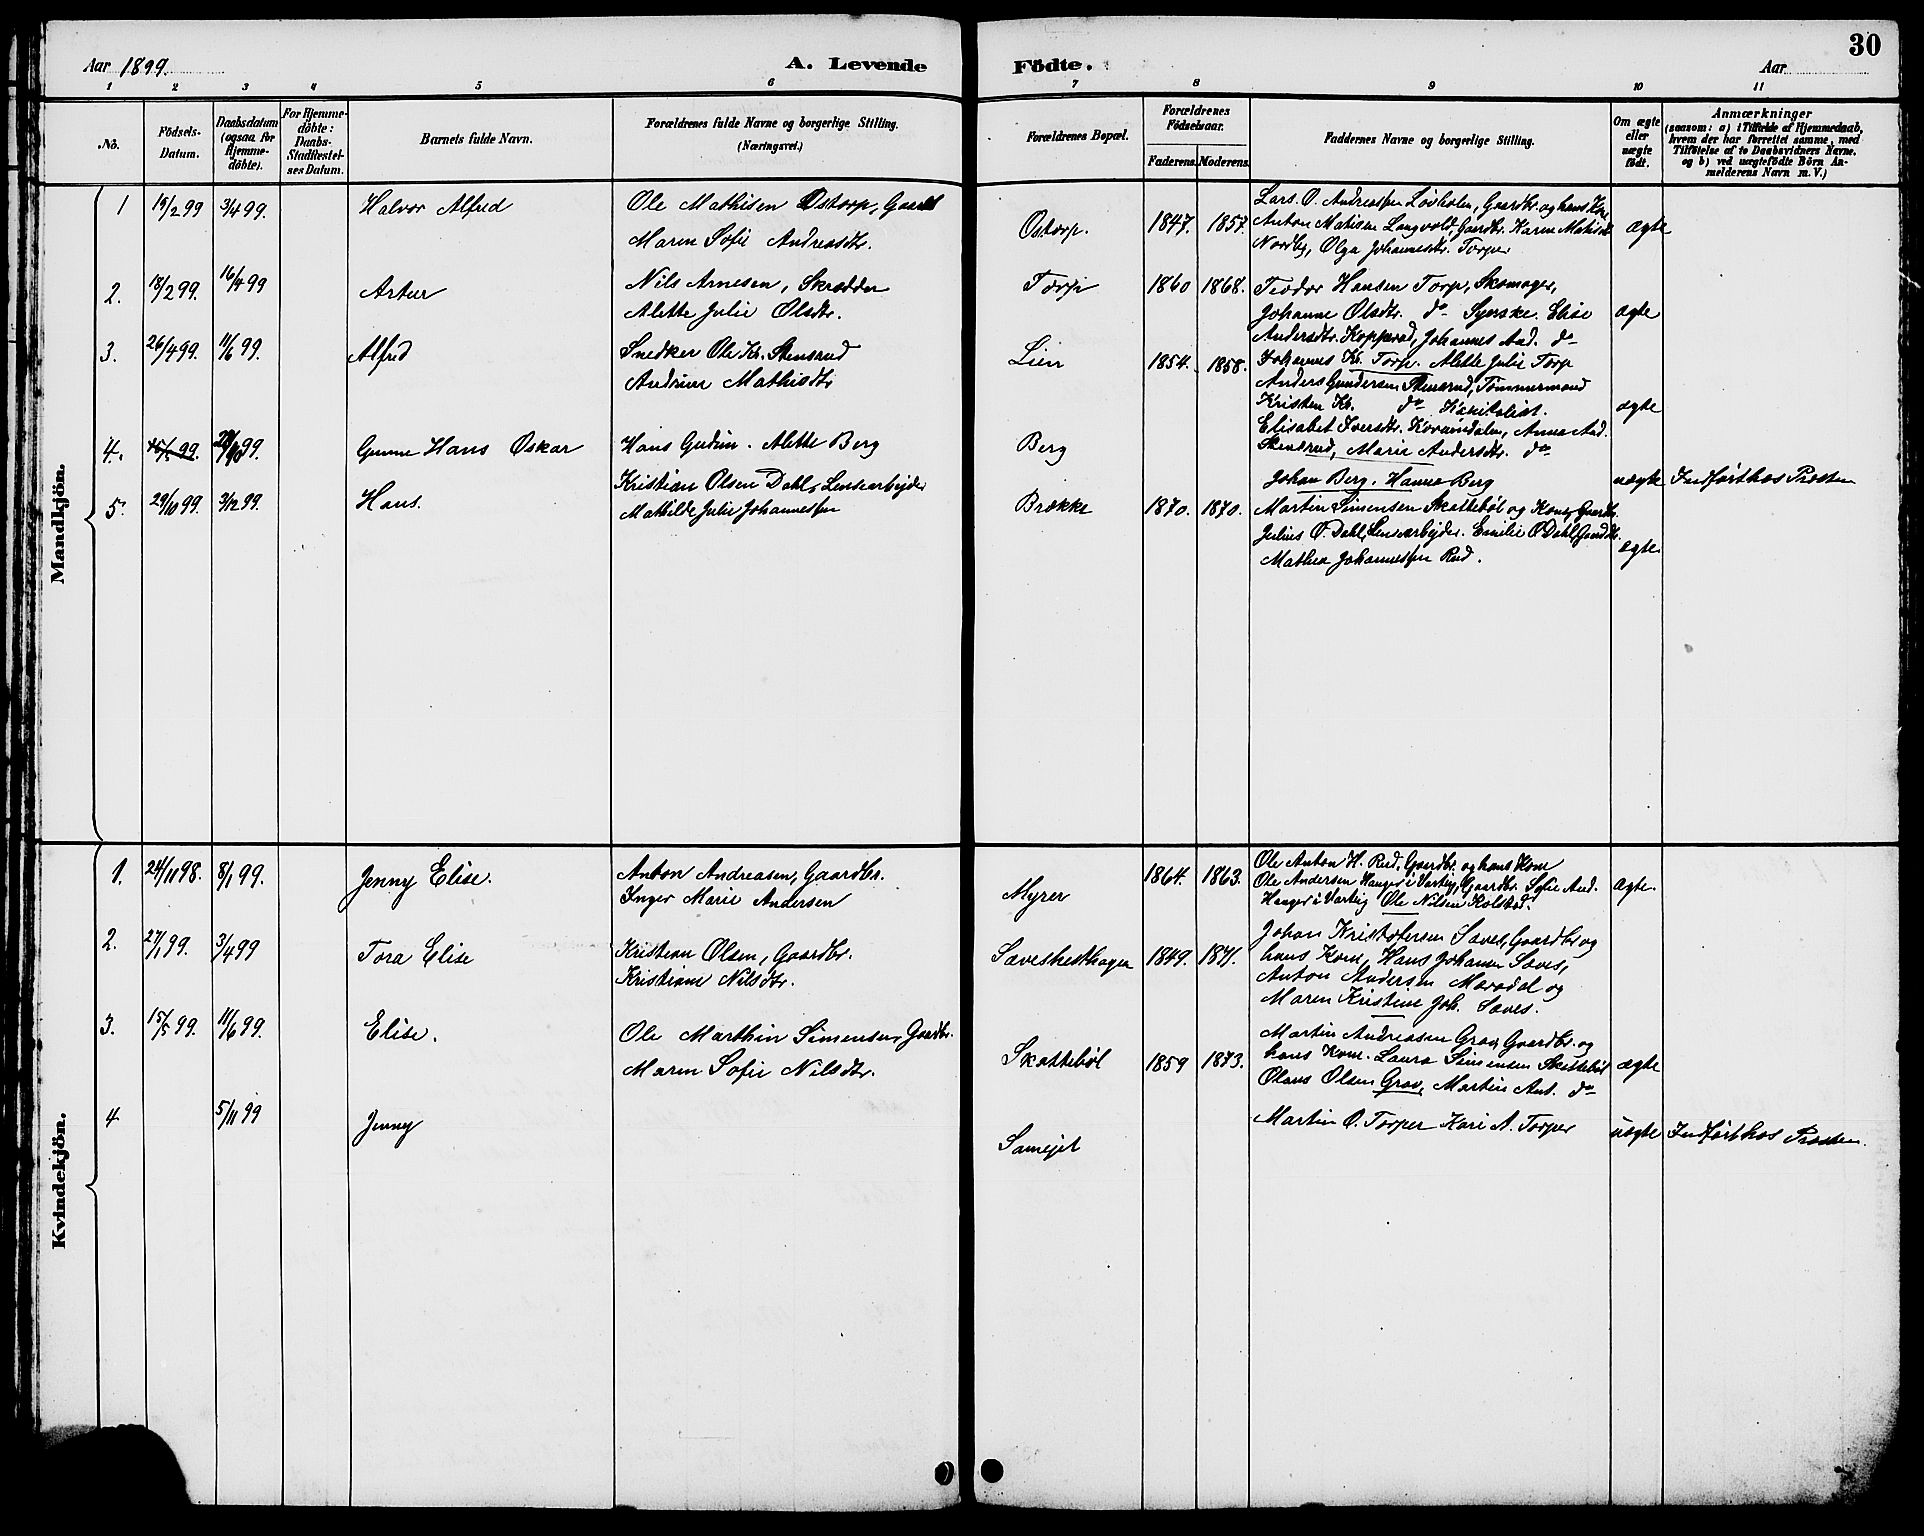 30
Aar 1899.
A. Levende
Födte.
Aar
1 2 3 4 5 6 7 8 9 10 11
No.
Födsels-Datum.
Daabsdatum (ogsaa for Hjemme-döbte).
For Hjemme-döbte: Daabs-Stadfæstel-ses Datum.
Barnets fulde Navn.
Forældrenes fulde Navne og borgerlige Stilling. (Næringsvei.)
Forældrenes Bopæl.
Forældrenes Födselsaar.
Faderens. Moderens.
Faddernes Navne og borgerlige Stilling.
Om ægte eller uægte födt.
Anmærkninger
(saasom: a) i Tilfælde af Hjemmedaab, hvem der har forrettet samme, med Tilföielse af to Daabsvidners Navne. og b) ved uægtefödte Börn An-melderens Navn m. V.)
Mandkjön.
1 19/2 99 3/4 99. Halvor Alfred
Ole Mathisen Ostorp, Gaardb
Maren Sofie Andreasdtr.
Ostorp. 1847. 1857.
Lars. O. Andreassen Løvholm, Gaardbr. og hans Kone
Anton Matisen Langvold, Gaardbr. Karen Matisdt
Nordby, Olga Johannesdtr. Torper
ægte
2. 18/2 99. 16/4 99 Artur
Nils Arnesen, Skrædder
Alette Julie Olsdtr.
Torp 1860 1868.
Teodor Hansen Torp, Skomager,
Johanne Olsdtr. do Syerske. Elise
Andersdtr. Kopperød, Johannes And. do
Johannes Kr. Torp. Alette Julie Torp
ægte
3. 26/4 99. 11/6 99. Alfred
Snedker Ole Kr. Stensrud
Andrine Mathisdtr
Lien 1854. 1858.
Anders Gundersen Stensrud, Tømmermand
Kristen Kr. do Kapitalist.
Elisabet Iversdtr. Anna And.
Stensrud, Marie Andersdtr. do
ægte
4. 99. Gunne Hans Oskar
Hans Gudim. Alette Berg
Berg
Johan Berg. Hanna Berg
uægte Indført hos Præsten
5. 29/10 99. 3/12 99. Hans.
Kristian Olsen Dahl, Lensearbejder
Mathilde Julie Johannessen
Brække 1870. 1870.
Martin Simensen Skattebøl og Kone, Gaardbr.
Julius O. Dahl, Lensearbejder. Emilie O Dahl, Gaarddtr.
Mathea Johannessen Rud.
ægte.
Kvindekjön.
1. 24/11 98. 8/1 99. Jenny Elise.
Anton Andreasen, Gaardbr.
Inger Marie Andersen
Myrer 1864. 1863.
Ole Anton H. Rud, Gaardbr. og hans Kone
Ole Andersen Hauger i Varteig, Gaardbr. Sofie And.
Hauger i Varteig Ole Nilsen Kolstad.
ægte.
2. 27/1 99. 3/4 99 Tora Elise
Kristian Olsen, Gaardbr.
Kristiane Nilsdtr.
Saveshesthagen 1849. 1871.
Johan Kristofersen Saves, Gaardbr og
hans Kone, Hans Johansen Saves,
Anton Andersen Morodal og
Maren Kristine Joh. Saves.
3. 15/5 99. 11/6 99. Elise.
Ole Marthin Simensen, Gaardbr.
Maren Sofie Nilsdtr.
Skattebøl 1859 1873.
Martin Andreasen Grav, Gaardbr. og
hans Kone. Laura Simensen Skattebøl
Olaus Olsen Grav, Martin Ant. do
ægte
4 5/11 99 Jenny
Samejet
Martin O. Torper Kari A. Torper
uægte Indført hos Præsten.